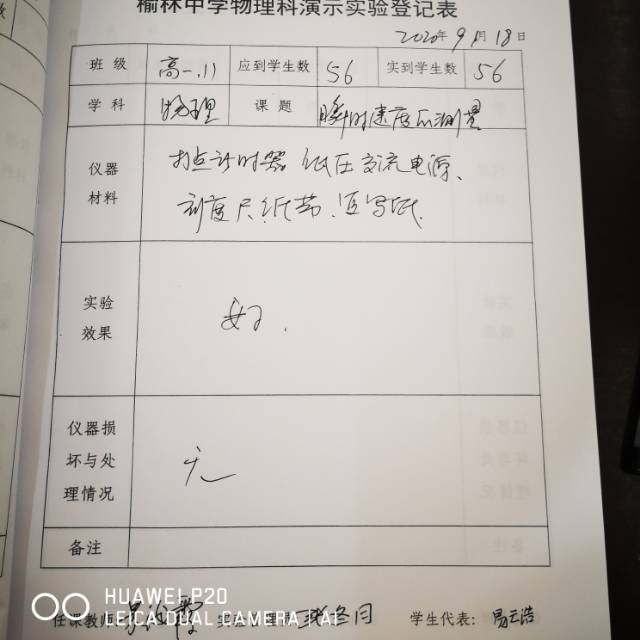 榆林中学物理科演示实验登记表
2020年9月18日
班级 高一.11 应到学生数 56 实到学生数 56
学科 物理 课题 瞬时速度的测量
仪器 打点计时器 低压交流电源、
材料 刻度尺.纸带.复写纸.
实验
效果
好.
仪器损
坏与处 无
理情况
备注
任课教师: 学生代表:
HUAWEI P20
LEICA DUAL CAMERA | AI